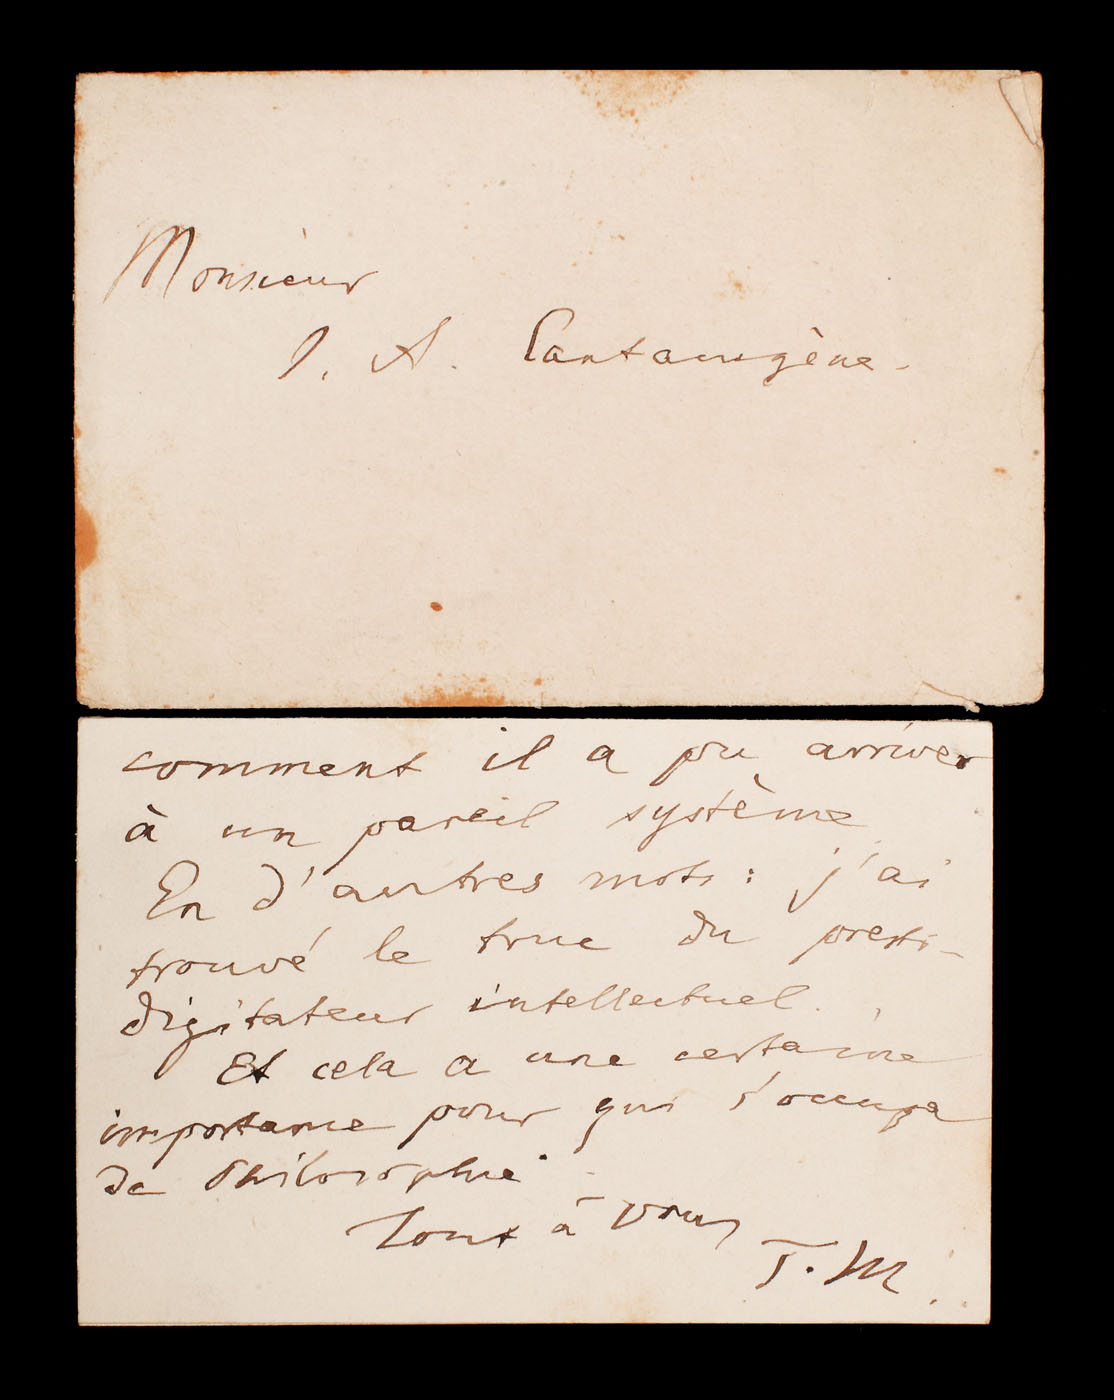 Monsieur
J. A. Cantacuzène.
comment il a pu arriver
à un pareil système
En d'autres mots: j'ai
trouvé le truc du presti-
digitateur intellectuel.
Et cela a une certaine
importance pour qui s'occupe
de Philosophie.
Tout à vous
T. M.